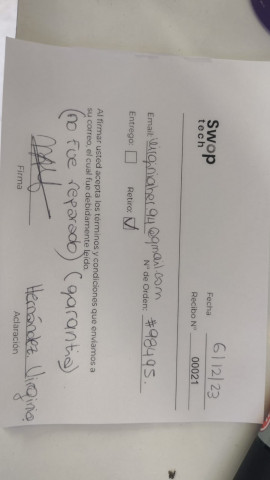 Swop
tech
Fecha 6/12/23
Recibo N° 00021
Email:
N° de Orden: #98495.
Entrego: Retiro:
Al firmar usted acepta los términos y condiciones que enviamos a
su correo, el cual fue debidamente leído.
(no fue reparado) (garantia)
Hernández Virginia
Firma Aclaración